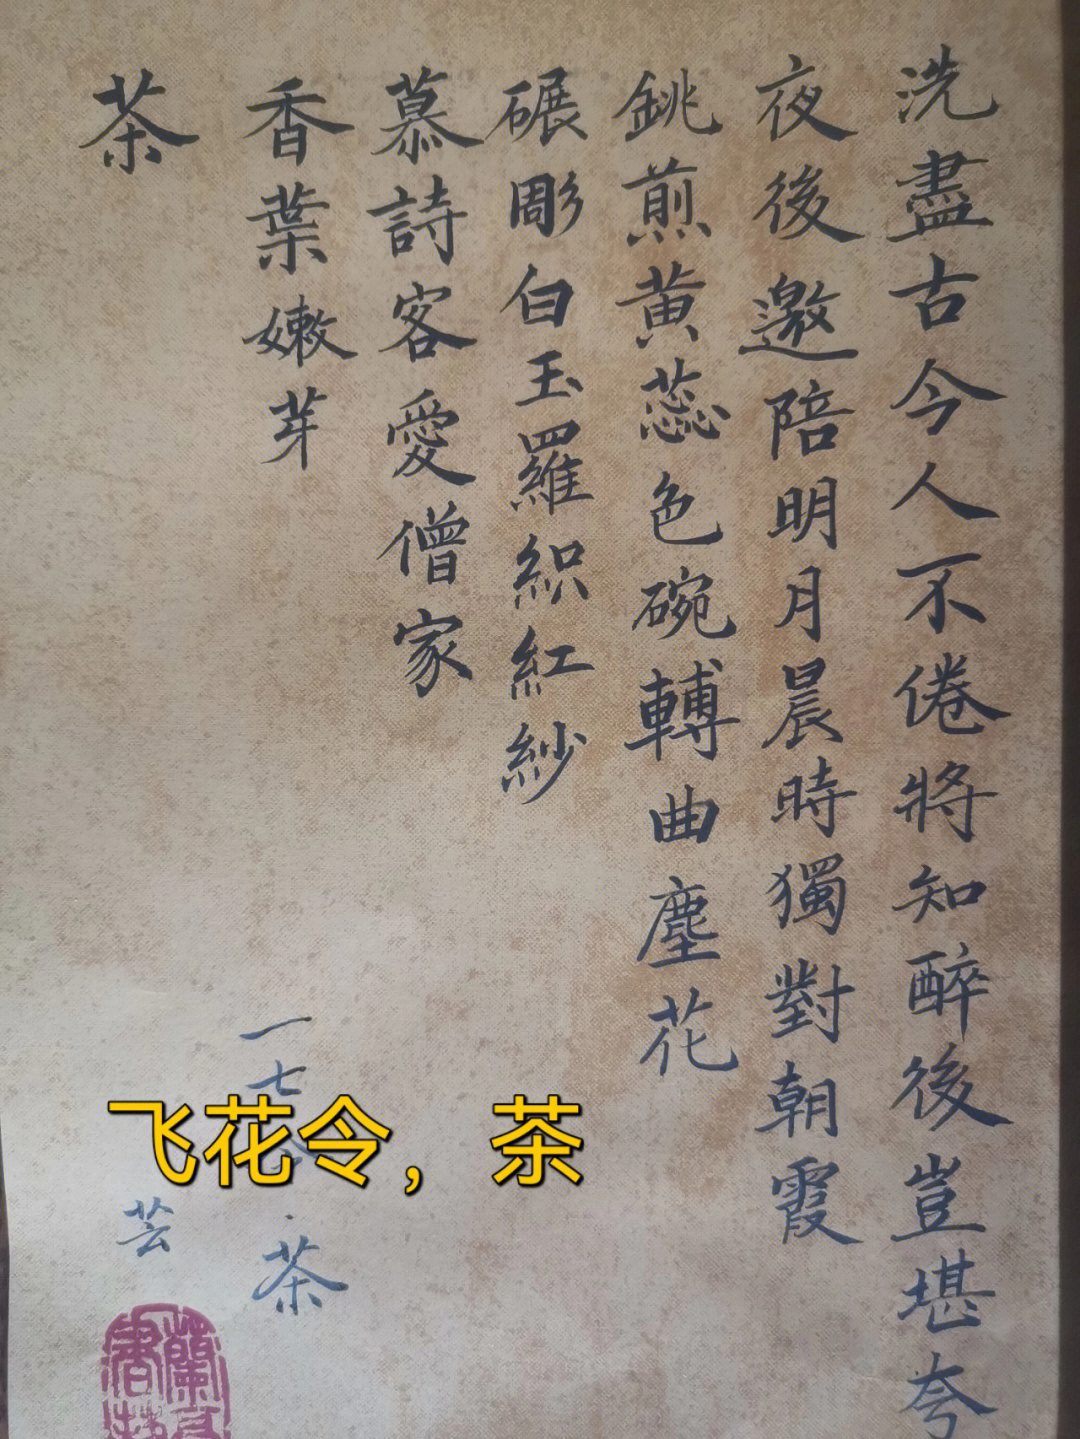 茶
香葉嫩芽
慕詩客愛僧家
碾彫白玉羅織紅紗
銚煎黄蕊色碗轉曲塵花
夜後邀陪明月晨時獨對朝霞
洗盡古今人不倦將知醉後豈堪夸
一七令·茶
芸
飞花令，茶